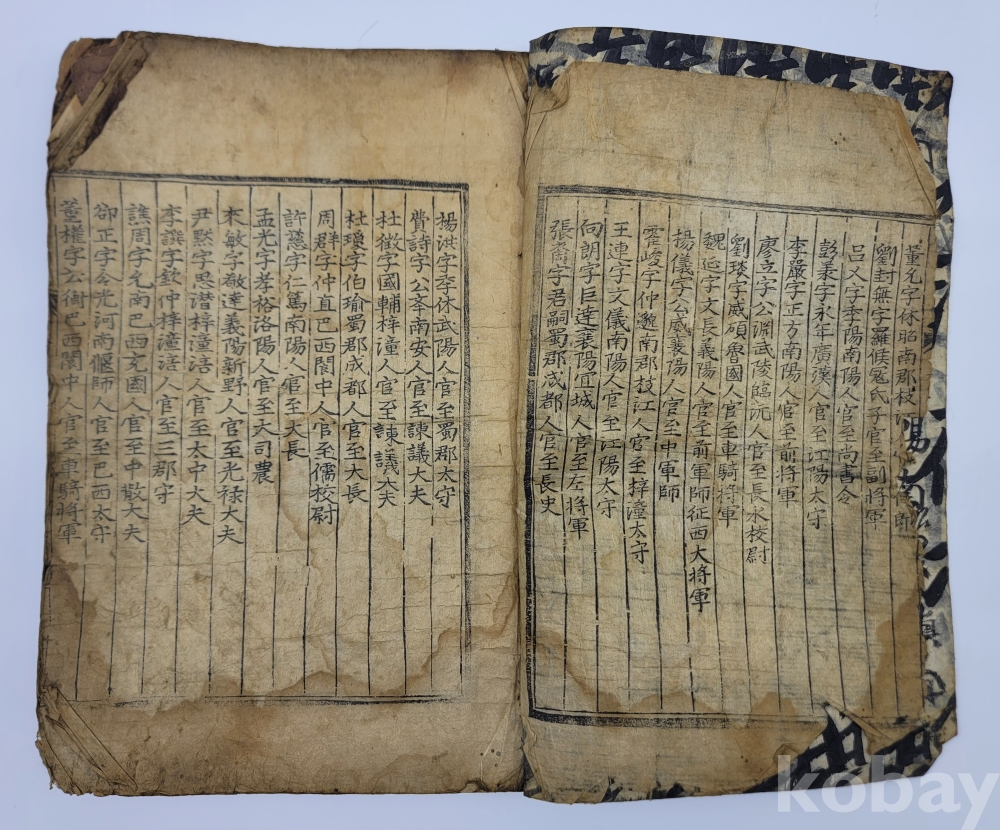 董允字休昭南郡枝
劉封無字羅侯冦氏子官至副將軍
吕乂字季陽南陽人官至尚書令
彭羕字永年廣漢人官至江陽太守
李嚴字正方南陽人官至前將軍
廖立字公淵武陵臨沅人官至長水校尉
劉琰字威碩魯國人官至車騎將軍
魏延字文長義陽人官至前軍師征西大将軍
楊儀字公威襄陽人官至中軍師
霍峻字仲邈南郡枝江人官至梓潼太守
王連字文儀南陽人官至江陽太守
向朗字巨達襄陽宜城人官至左將軍
張裔字君嗣蜀郡成都人官至長史
楊洪字季休武陽人官至蜀郡太守
費詩字公舉南安人官至諫議大夫
杜微字國輔梓潼人官至諫議大夫
杜瓊字伯瑜蜀郡成都人官至大長
周群字仲直巴西閬中人官至儒校尉
許慈字仁篤南陽人官至大長
孟光字孝裕洛陽人官至大司農
来敏字敬達義陽新野人官至光禄大夫
尹黙字思潜梓潼涪人官至太中大夫
李譔字欽仲梓潼涪人官至三郡守
譙周字允南巴西充國人官至中散大夫
郤正字令光河南偃師人官至巴西太守
董權字公衡巴西閬中人官至車騎將軍
kobay